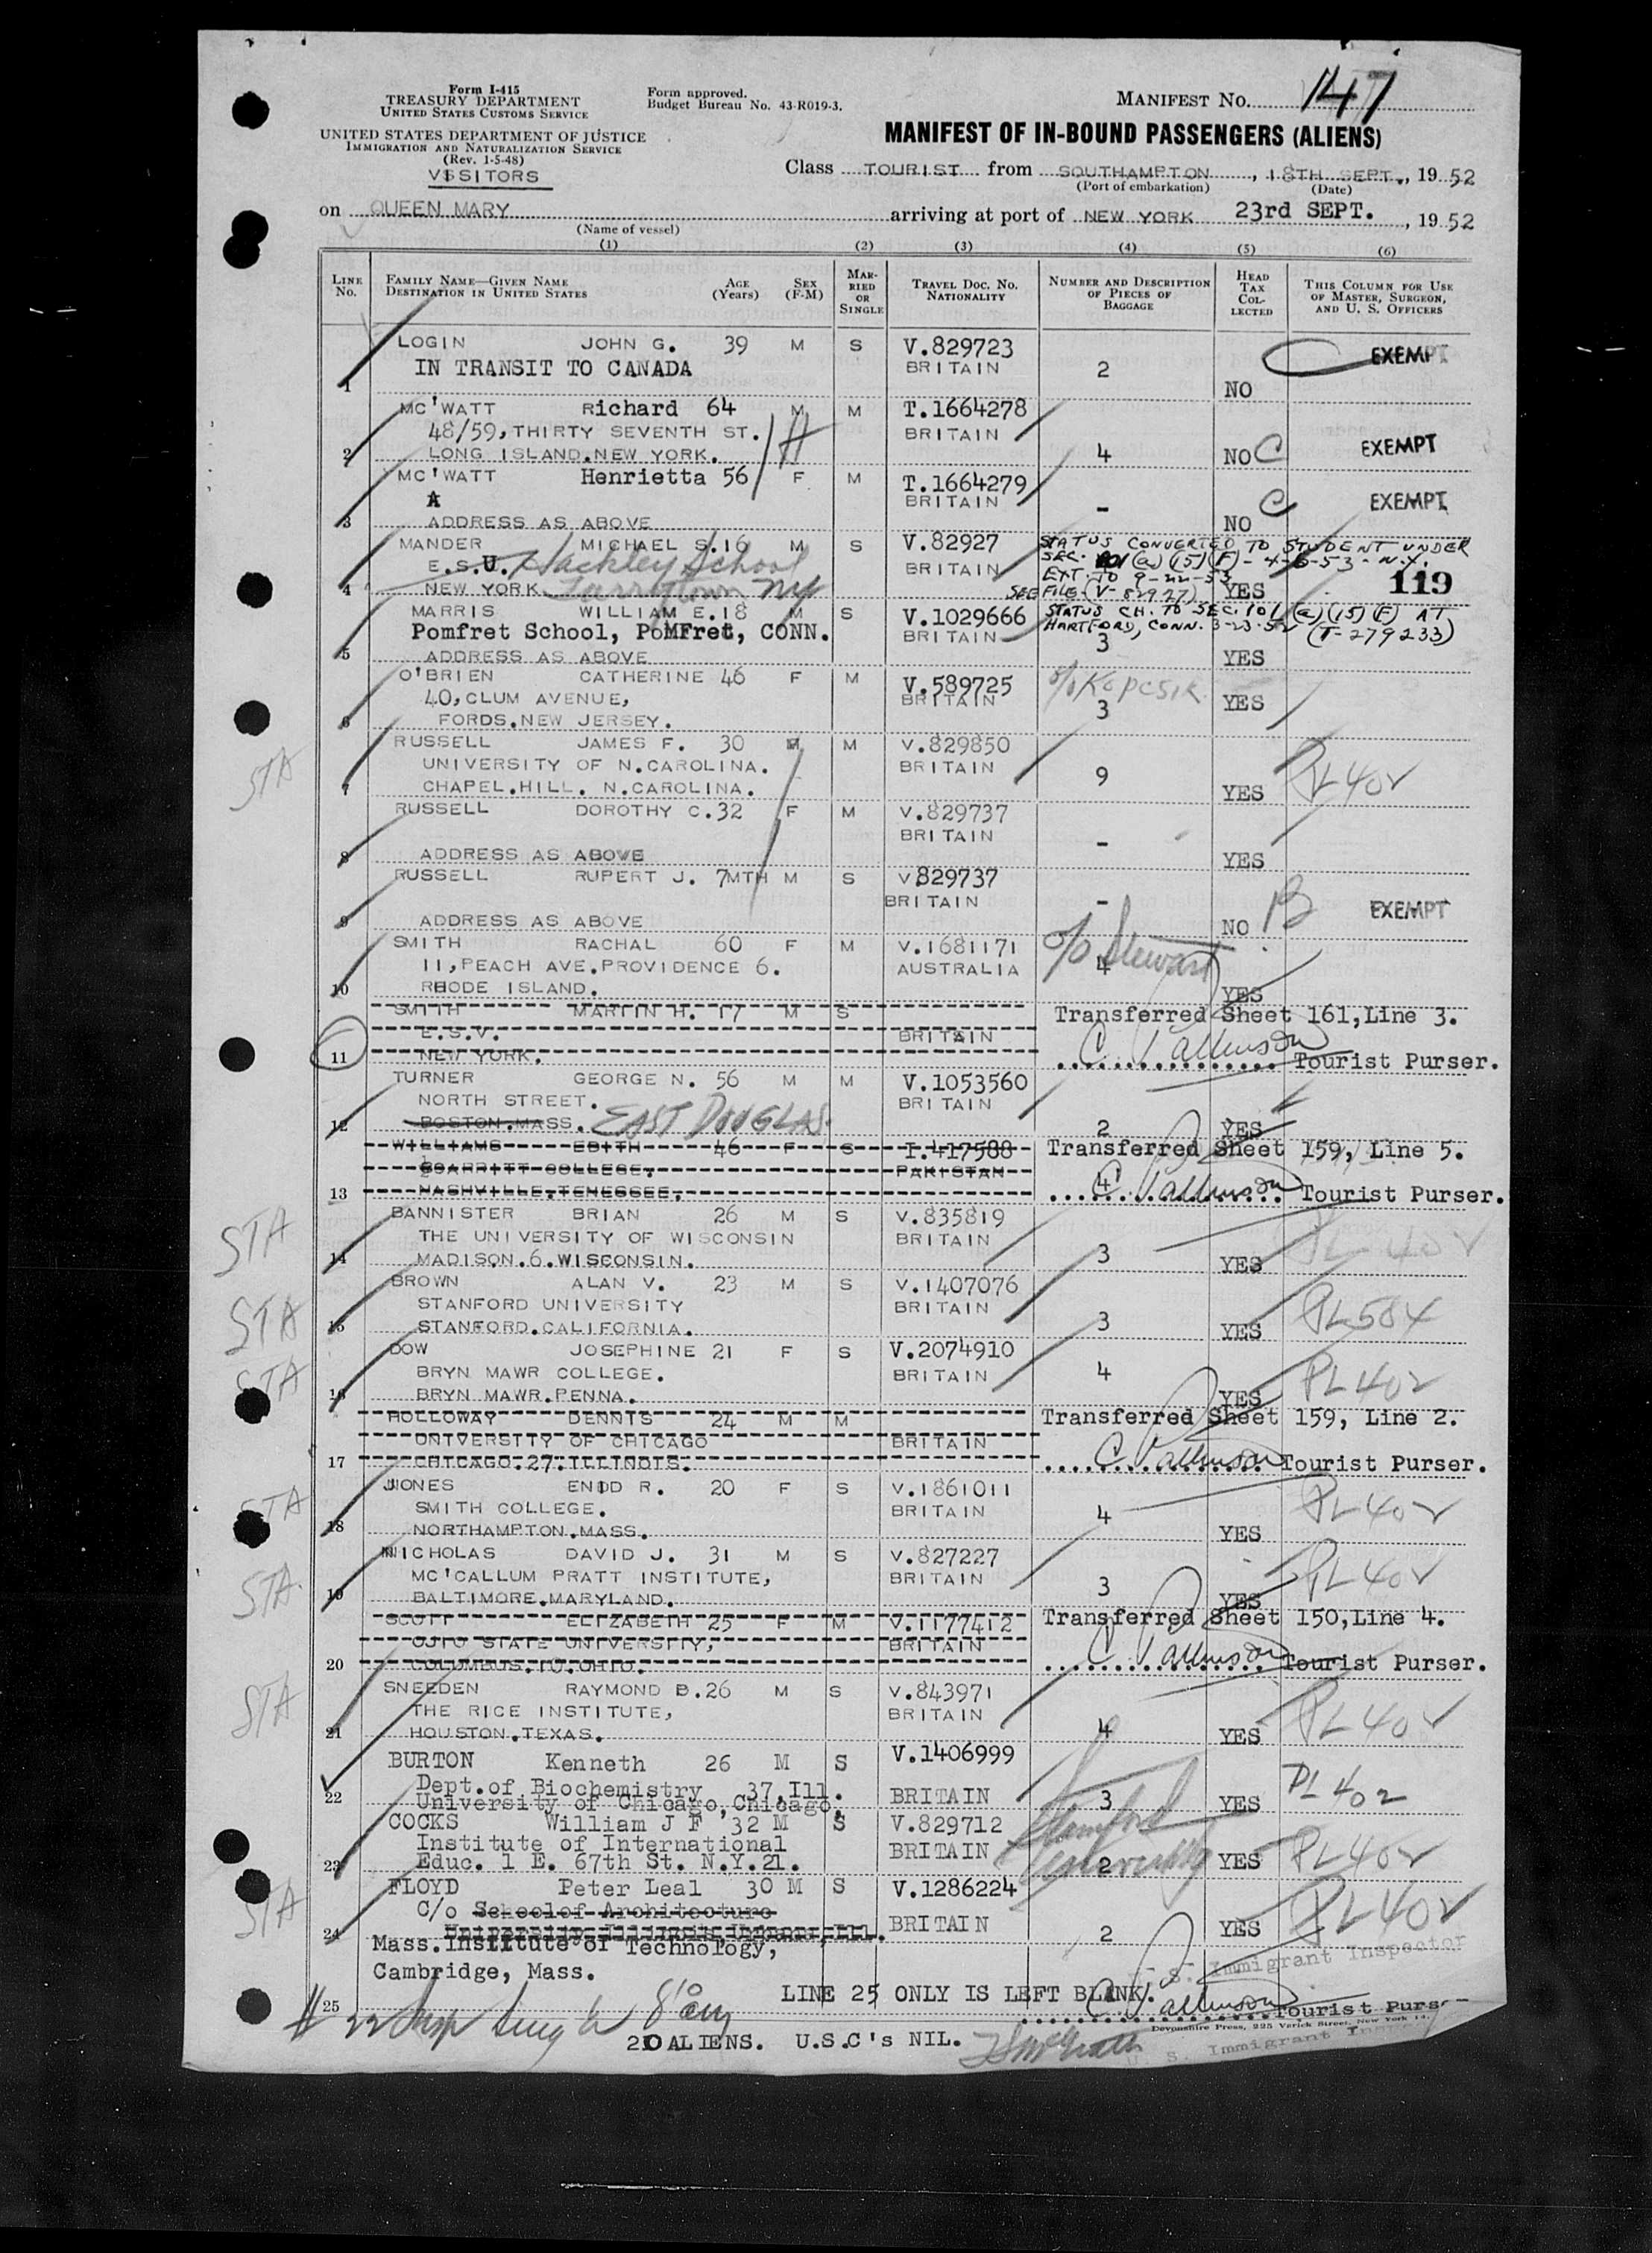 Form I-415
TREASURY DEPARTMENT
UNITED STATES CUSTOMS SERVICE
UNITED STATES DEPARTMENT OF JUSTICE
IMMIGRATION AND NATURALIZATION SERVICE
(Rev. 1-5-48)
VISITORS
Form approved.
Budget Bureau No. 43-R019-3.
MANIFEST NO. 147
MANIFEST OF IN-BOUND PASSENGERS (ALIENS)
Class TOURIST from SOUTHAMPTON, 18TH SEPT., 1952
(Port of embarkation) (Date)
on QUEEN MARY arriving at port of NEW YORK 23rd SEPT., 1952
(Name of vessel)
(1) (2) (3) (4) (5) (6)
LINE No. FAMILY NAME—GIVEN NAME DESTINATION IN UNITED STATES AGE (Years) SEX (F-M) MARRIED OR SINGLE TRAVEL DOC. NO. NATIONALITY NUMBER AND DESCRIPTION OF PIECES OF BAGGAGE HEAD TAX COLLECTED THIS COLUMN FOR USE OF MASTER, SURGEON, AND U. S. OFFICERS
LOGIN JOHN G. 39 M S V.829723 EXEMPT
IN TRANSIT TO CANADA BRITAIN 2
1 NO
MC'WATT Richard 64 M M T.1664278
48/59, THIRTY SEVENTH ST. BRITAIN EXEMPT
2 LONG ISLAND.NEW YORK. 4 NO C
MC'WATT Henrietta 56 F M T.1664279
A BRITAIN - C EXEMPT
3 ADDRESS AS ABOVE NO
MANDER MICHAEL S. 16 M S V.82927 STATUS CONVERTED TO STUDENT UNDER
E.S.U. Hackley School BRITAIN SEC. 101(a)(15)(F) - 4-6-53 - N.Y.
EXT. TO 9-22-53
4 NEW YORK Tarrytown NY SEE FILE (V-82927) YES 119
MARRIS WILLIAM E. 18 M S V.1029666 STATUS CH. TO SEC. 101(a)(15)(F) AT
Pomfret School, PoMFret, CONN. BRITAIN HARTFORD, CONN. 3-23-52 (T-279233)
5 ADDRESS AS ABOVE 3 YES
O'BRIEN CATHERINE 46 F M V.589725 c/o Kopcsik
40, CLUM AVENUE, BRITAIN YES
6 FORDS.NEW JERSEY. 3
RUSSELL JAMES F. 30 M M V.829850
STA UNIVERSITY OF N.CAROLINA. BRITAIN 9 PL 402
7 CHAPEL.HILL. N.CAROLINA. YES
RUSSELL DOROTHY C. 32 F M V.829737
BRITAIN -
8 ADDRESS AS ABOVE YES
RUSSELL RUPERT J. 7MTH M S V829737
BRITAIN - B EXEMPT
9 ADDRESS AS ABOVE NO
SMITH RACHAL 60 F M V.1681171 c/o Stewart
11, PEACH AVE.PROVIDENCE 6. AUSTRALIA 4
10 RHODE ISLAND. YES
SMITH MARTIN H. 17 M S Transferred Sheet 161, Line 3.
E.S.V. BRITAIN
11 NEW YORK. Tourist Purser.
TURNER GEORGE N. 56 M M V.1053560
NORTH STREET. BRITAIN
12 BOSTON.MASS. EAST DOUGLAS. 2 YES
WILLIAMS EDITH 46 F S I.417588 Transferred Sheet 159, Line 5.
SCARRITT COLLEGE. PAKISTAN 4
13 NASHVILLE.TENESSEE. Tourist Purser.
STA BANNISTER BRIAN 26 M S V.835819
THE UNIVERSITY OF WISCONSIN BRITAIN 3 PL 402
14 MADISON.6.WISCONSIN. YES
STA BROWN ALAN V. 23 M S V.1407076
STANFORD UNIVERSITY BRITAIN PL 584
15 STANFORD.CALIFORNIA. 3 YES
STA DOW JOSEPHINE 21 F S V.2074910
BRYN MAWR COLLEGE. BRITAIN 4 PL 402
16 BRYN MAWR.PENNA. YES
HOLLOWAY DENNIS 24 M M Transferred Sheet 159, Line 2.
UNIVERSITY OF CHICAGO BRITAIN
17 CHICAGO.27.ILLINOIS. Tourist Purser.
STA JONES ENID R. 20 F S V.1861011
SMITH COLLEGE. BRITAIN 4 PL 402
18 NORTHAMPTON.MASS. YES
STA NICHOLAS DAVID J. 31 M S V.827227
MC'CALLUM PRATT INSTITUTE, BRITAIN 3 PL 402
19 BALTIMORE.MARYLAND. YES
SCOTT ELIZABETH 25 F M V.1177412 Transferred Sheet 150, Line 4.
OJIO STATE UNIVERSITY, BRITAIN
20 COLUMBUS.10.OHIO. Tourist Purser.
STA SNEEDEN RAYMOND B. 26 M S V.843971
THE RICE INSTITUTE, BRITAIN PL 402
21 HOUSTON.TEXAS. 4 YES
BURTON Kenneth 26 M S V.1406999
Dept.of Biochemistry 37,Ill. BRITAIN PL 402
22 University of Chicago, Chicago, 3 YES
COCKS William J F 32 M S V.829712 Stanford
Institute of International BRITAIN University
23 Educ. 1 E. 67th St. N.Y.21. 2 YES PL 402
STA FLOYD Peter Leal 30 M S V.1286224
C/o Schoolof Architecture BRITAIN PL 402
24 University Illinois Urbana, Ill. 2 YES
Mass.Institute of Technology,
Cambridge, Mass. U. S. Immigrant Inspector
LINE 25 ONLY IS LEFT BLANK.
25 Tourist Purser
Devonshire Press, 225 Varick Street, New York 14,
20 ALIENS. U.S.C's NIL.
U. S. Immigrant